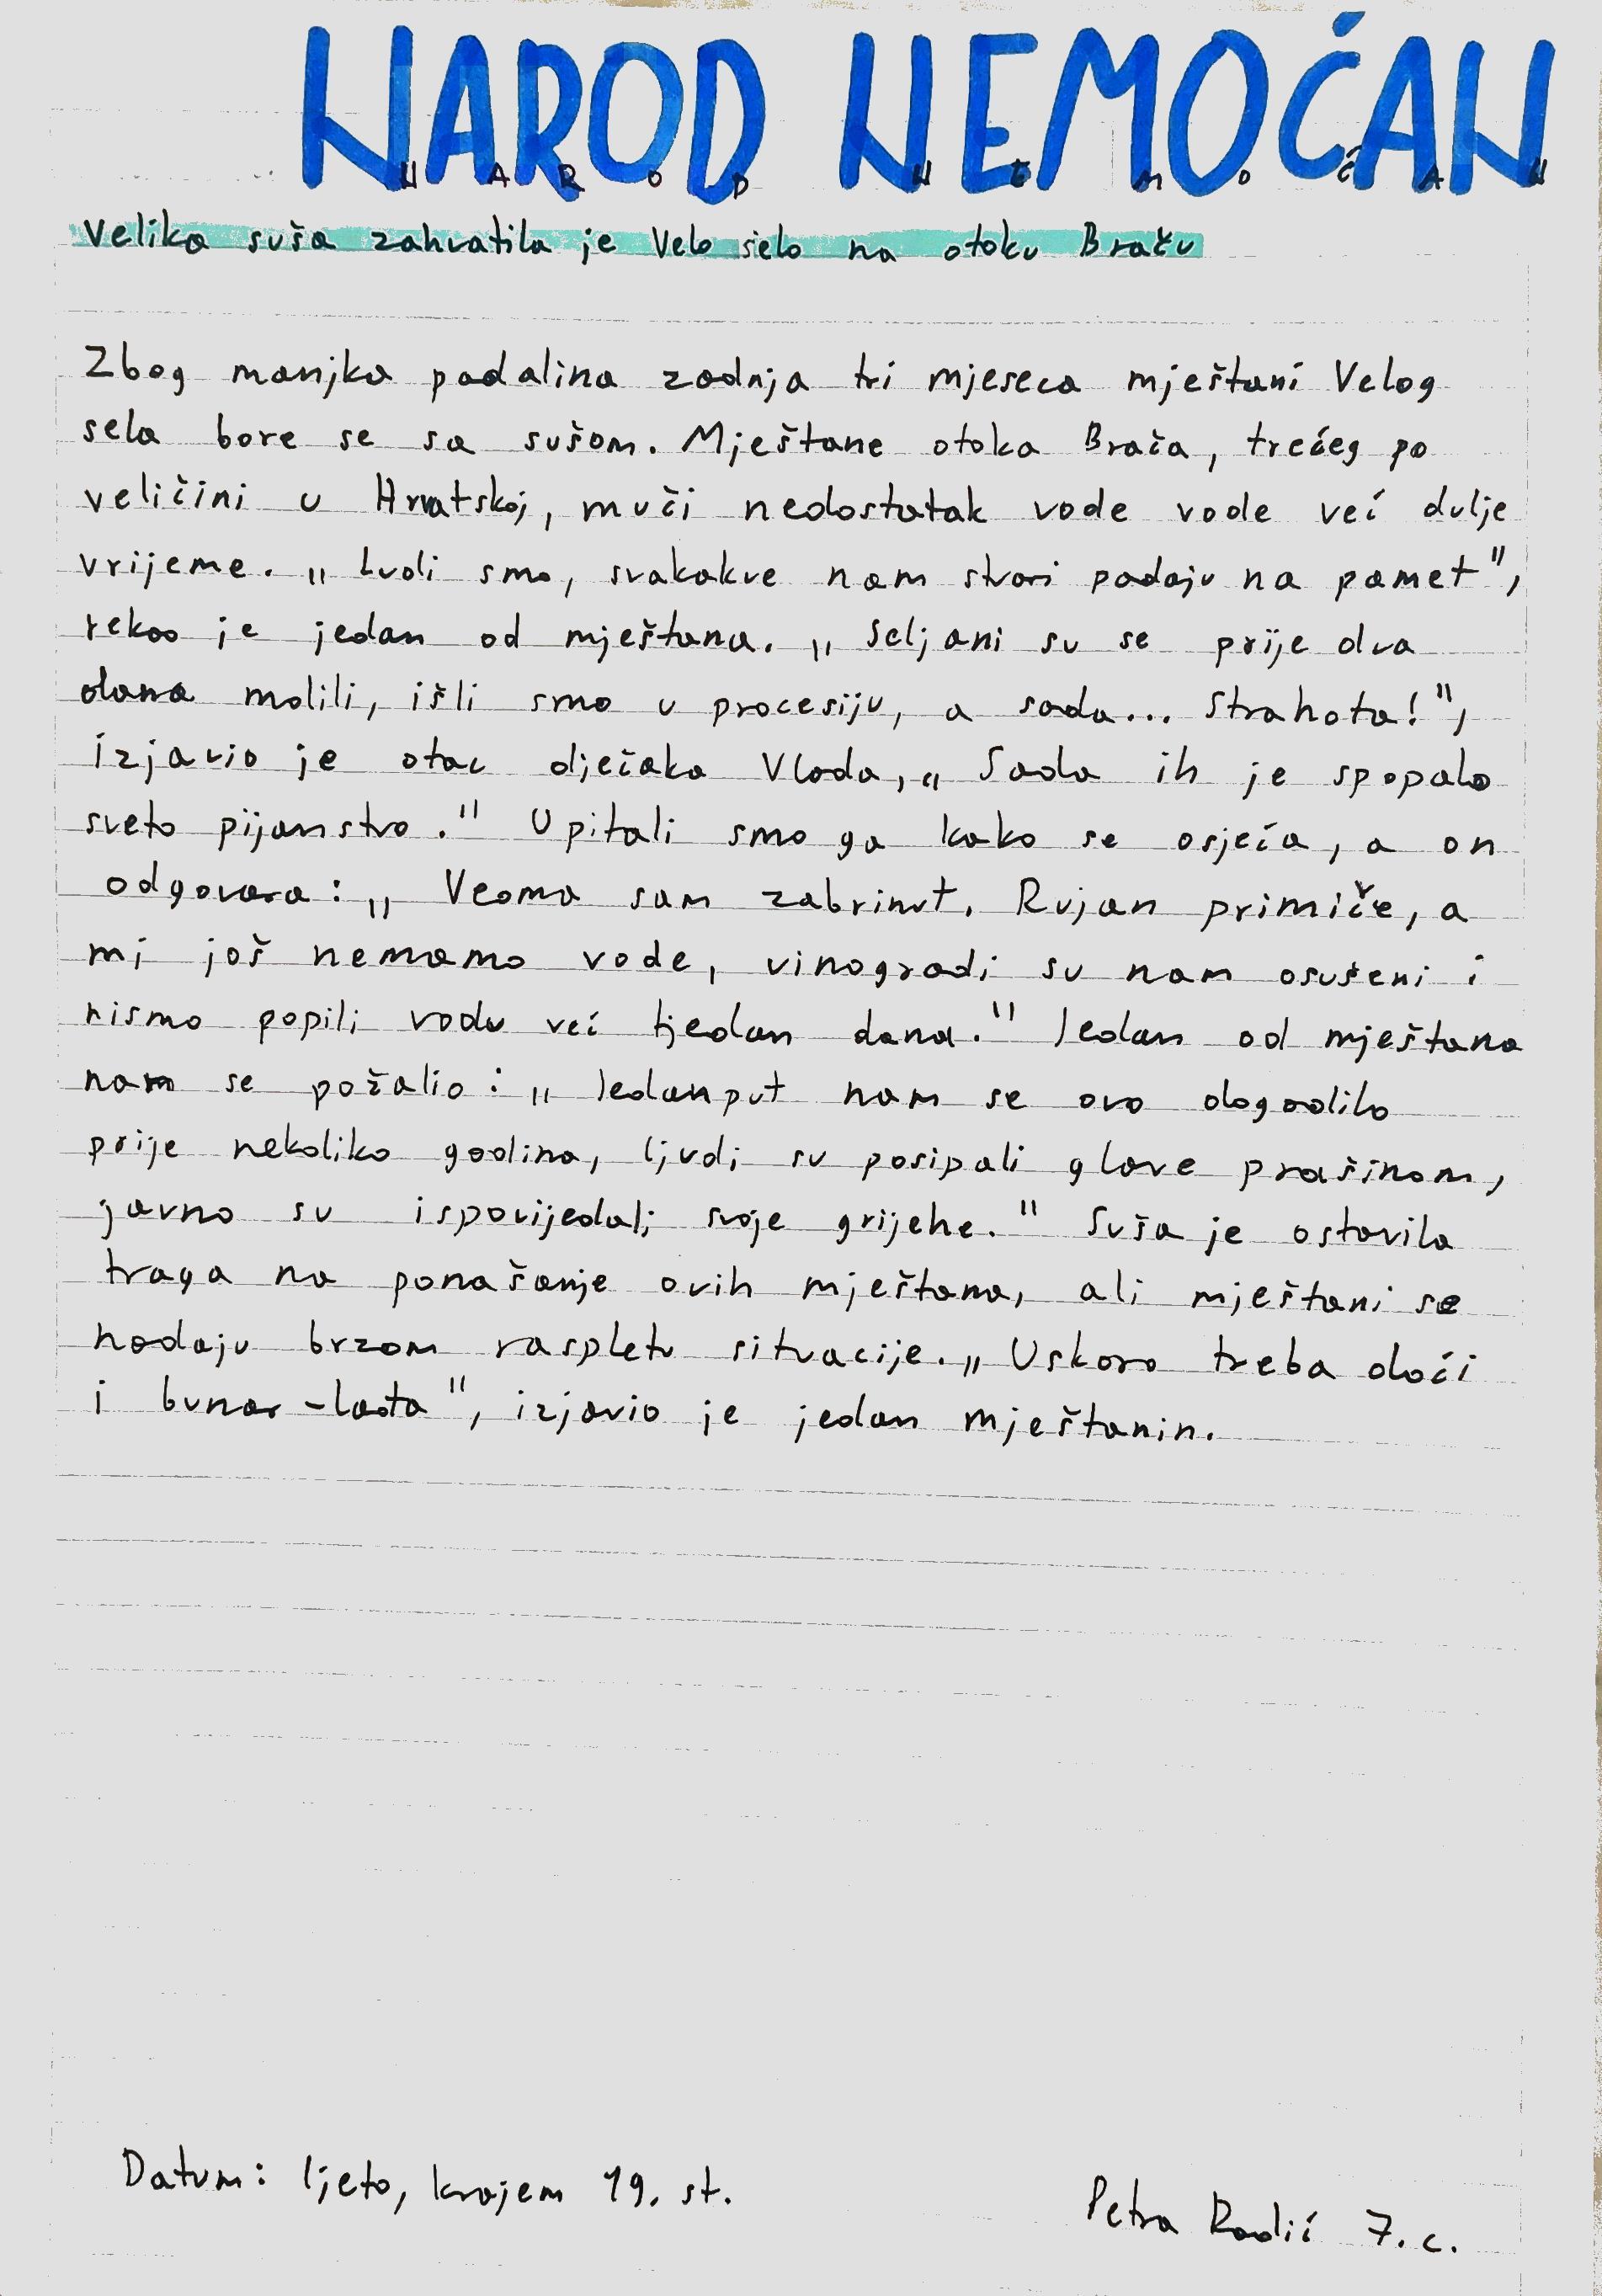 NAROD NEMOĆAN
N A R O D N E M O Ć A N
Velika suša zahvatila je Velo selo na otoku Braču
Zbog manjka padalina zadnja tri mjeseca mještani Velog
sela bore se sa sušom. Mještane otoka Brača, trećeg po
veličini u Hrvatskoj, muči nedostatak vode vode već dulje
vrijeme. „Ludi smo, svakakve nam stvari padaju na pamet",
rekao je jedan od mještana. „Seljani su se prije dva
dana molili, išli smo u procesiju, a sada... Strahota!",
izjavio je otac dječaka Vlada, „Sada ih je spopalo
sveto pijanstvo." Upitali smo ga kako se osjeća, a on
odgovara: „Veoma sam zabrinut. Rujan primiče, a
mi još nemamo vode, vinogradi su nam osušeni i
nismo popili vodu već tjedan dana." Jedan od mještana
nam se požalio: „Jedanput nam se ovo dogodilo
prije nekoliko godina, ljudi su posipali glave prašinom,
javno su ispovijedali svoje grijehe." Suša je ostavila
traga na ponašanje ovih mještana, ali mještani se
nadaju brzom raspletu situacije. „Uskoro treba doći
i bunar-lađa", izjavio je jedan mještanin.
Datum: ljeto, krajem 19. st.
Petra Radić 7. c.